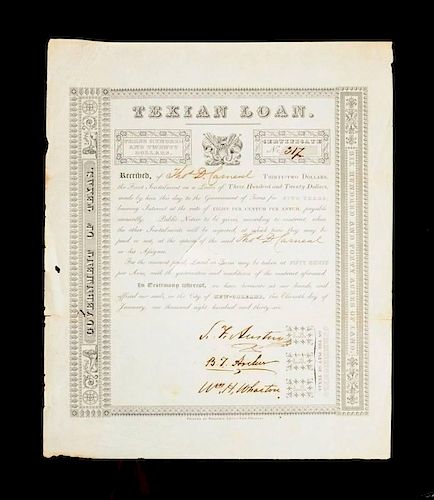 TEXIAN LOAN.
THREE HUNDRED
AND TWENTY
DOLLARS.
CERTIFICATE
317
Received, of Thos D Carneal THIRTY-TWO DOLLARS,
the First Instalment on a Loan of Three Hundred and Twenty Dollars,
made by him this day to the Government of Texas for FIVE YEARS,
bearing Interest at the rate of EIGHT PER CENTUM PER ANNUM, payable
annually. Public Notice to be given, according to contract, when
the other Instalments will be required, at which time they may be
paid or not, at the option of the said Thos D Carneal
or his Assigns.
For the amount paid, Land in Texas may be taken at FIFTY CENTS
per Acre, with the guarantees and conditions of the contract aforesaid.
In Testimony whereof, we have hereunto set our hands, and
official our seals, in the City of NEW-ORLEANS, this Eleventh day of
January, one thousand eight hundred and thirty-six.
S. F. Austin
B. T. Archer
Wm. H. Wharton
GOVERNMENT OF TEXAS.
SIX HUNDRED AND FORTY ACRES OF LAND.